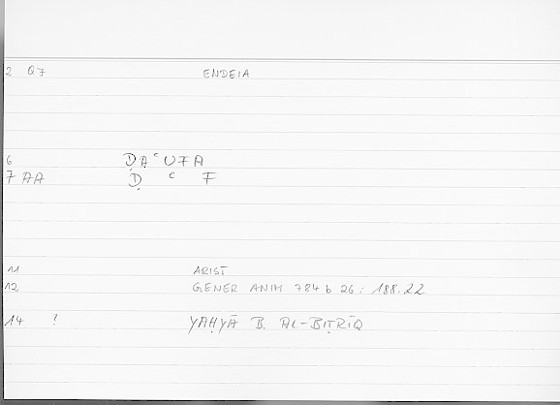 2 Q7 ENDEIA
6 ḌAʿUFA
7 AA Ḍ ʿ F
11 ARIST
12 GENER ANIM 784 b 26 : 188.22
14 ? YAḤYĀ B. AL-BIṬRĪQ